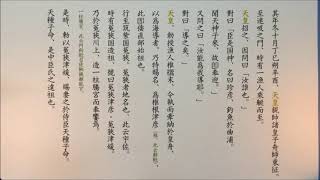 其年冬十月丁巳朔辛酉、天皇親帥諸皇子舟師東征。
至速吸之門、時有一漁人乘艇而至。
天皇招之、因問曰「汝誰也。」
對曰「臣是國神、名曰珍彥、釣魚於曲浦。
聞天神子來、故卽奉迎。」
又問之曰「汝能爲我導耶。」
對曰「導之矣。」
天皇、勅授漁人椎㰏末、令執而牽納於皇舟、
以爲海導者、乃特賜名、爲椎根津彥(椎、此云辭毗)、
此卽倭直部始祖也。
行至筑紫國菟狹。菟狹者地名也、此云宇佐。
時有菟狹國造祖、號曰菟狹津彥・菟狹津媛、
乃於菟狹川上、造一柱騰宮而奉饗焉。
是時、勅以菟狹津媛、賜妻之於侍臣天種子命。
天種子命、是中臣氏之遠祖也。